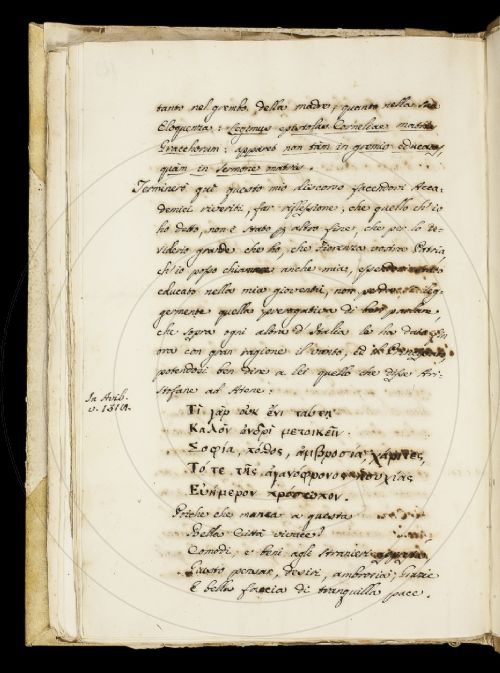 tanto nel grembo della madre, quanto nella sua
Eloquenza: Legimus epistolas Corneliae matris
Gracchorum: apparet non tàm in gremio educatos,
quàm in sermone matris.
Terminerò qui questo mio discorso facendovi Acca-
demici riveriti, far riflessione, che quello ch'io
ho detto, non è stato p altro fine, che per lo de-
siderio grande che ho, che Fiorenza vostra Patria,
ch'io posso chiamare anche mia, essendo stato
educato nella mia gioventù, non perda
germente quella prerogativa di ben parlare,
che sopra ogni altra d'Italia le ha dato fin
ora con gran ragione il vanto, ed il
potendosi ben dire a lei quello che disse Ari-
stofane ad Atene:
In Avib.
v. 1319.
Τί γὰρ οὐκ ἔνι ταύτῃ
Καλὸν ἀνδρὶ μετοικεῖν.
Σοφία, πόθος, ἀμβροσία, χάριτες,
Τό τε τῆς ἀγανόφρονος ἡσυχίας
Εὐήμερον πρόσωπον.
Poiche che manca a questa
Bella Città vivace?
Comodi, e beni agli stranieri
Giusto pensar, desiri, ambrosia, Grazie
E bella faccia di tranquilla pace.